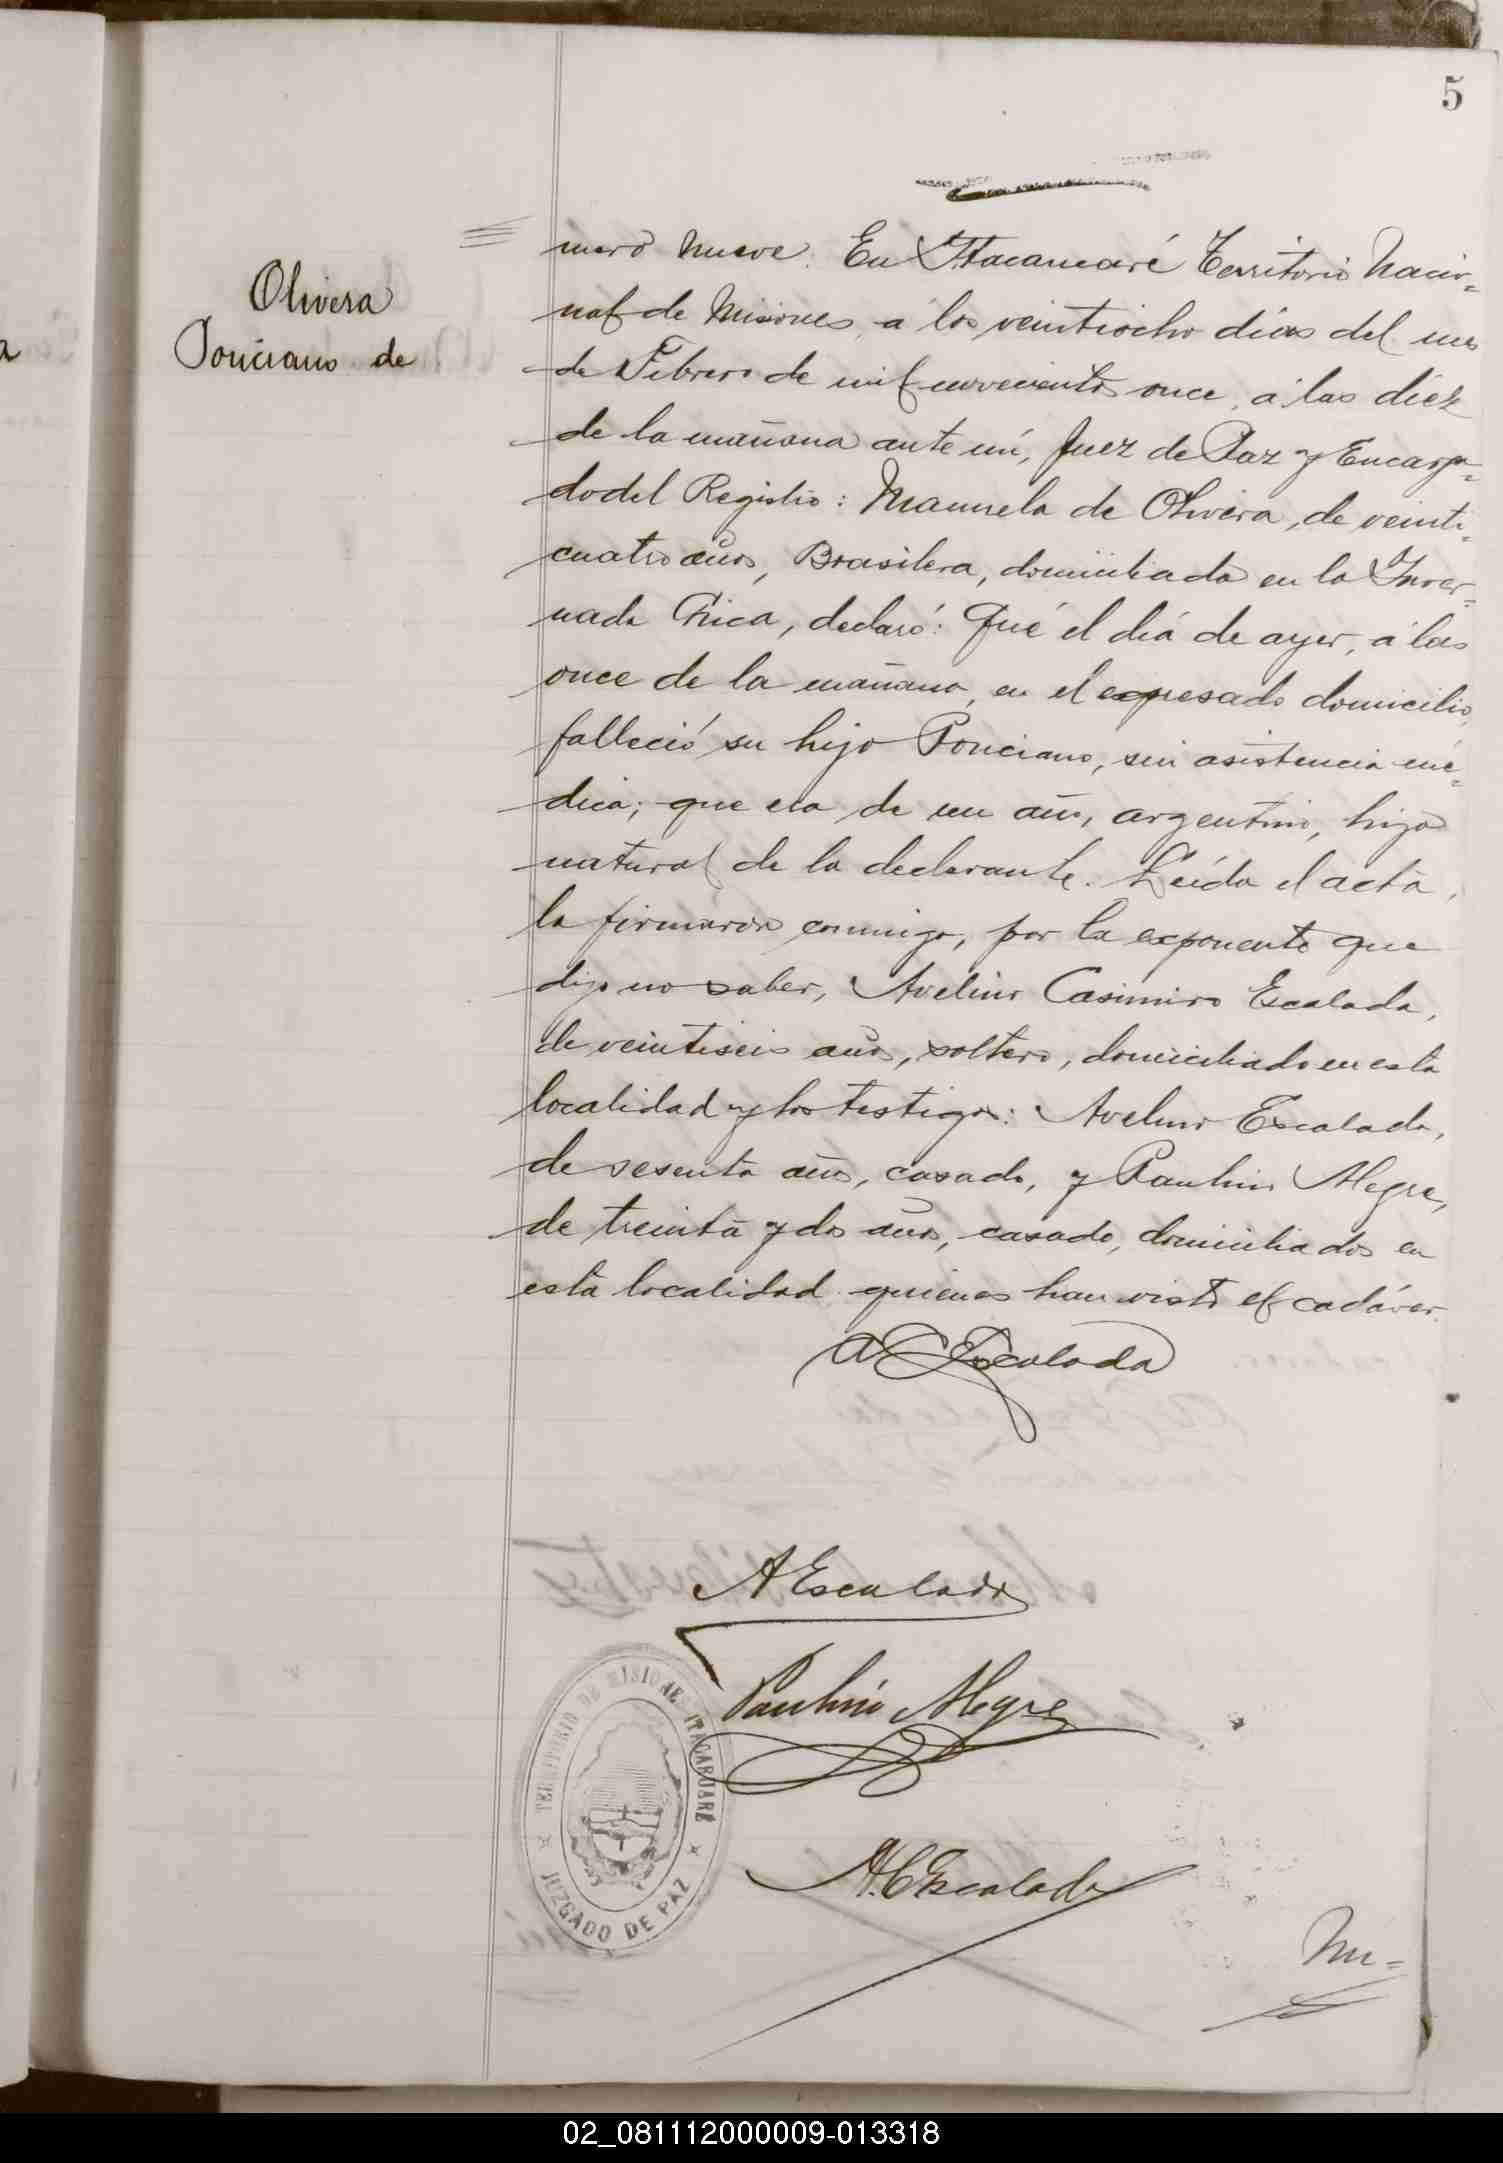 5
Olivera
Ponciano de
mero nueve. En Itacaruaré Territorio Nacio=
nal de Misiones, a los veintiocho días del mes
de Febrero de mil novecientos once, a las diez
de la mañana ante mí, Juez de Paz y Encarga=
do del Registro: Manuela de Olivera, de veinti=
cuatro años, Brasilera, domiciliada en la Inver=
nada Chica, declaró: Qué el día de ayer, a las
once de la mañana, en el expresado domicilio,
falleció su hijo Ponciano, sin asistencia mé=
dica; que era de un año, argentino, hijo
natural de la declarante. Leída el acta,
la firmaron conmigo, por la exponente que
dijo no saber, Avelino Casimiro Escalada,
de veintiseis años, soltero, domiciliado en esta
localidad y los testigos: Avelino Escalada,
de sesenta años, casado, y Paulino Alegre,
de treinta y dos años, casado, domiciliados en
esta localidad quienes han visto el cadáver.
A C Escalada
A Escalada
Paulino Alegre
TERRITORIO DE MISIONES ITACARUARÉ
JUZGADO DE PAZ
A. C Escalada
Nú=
02_081112000009-013318